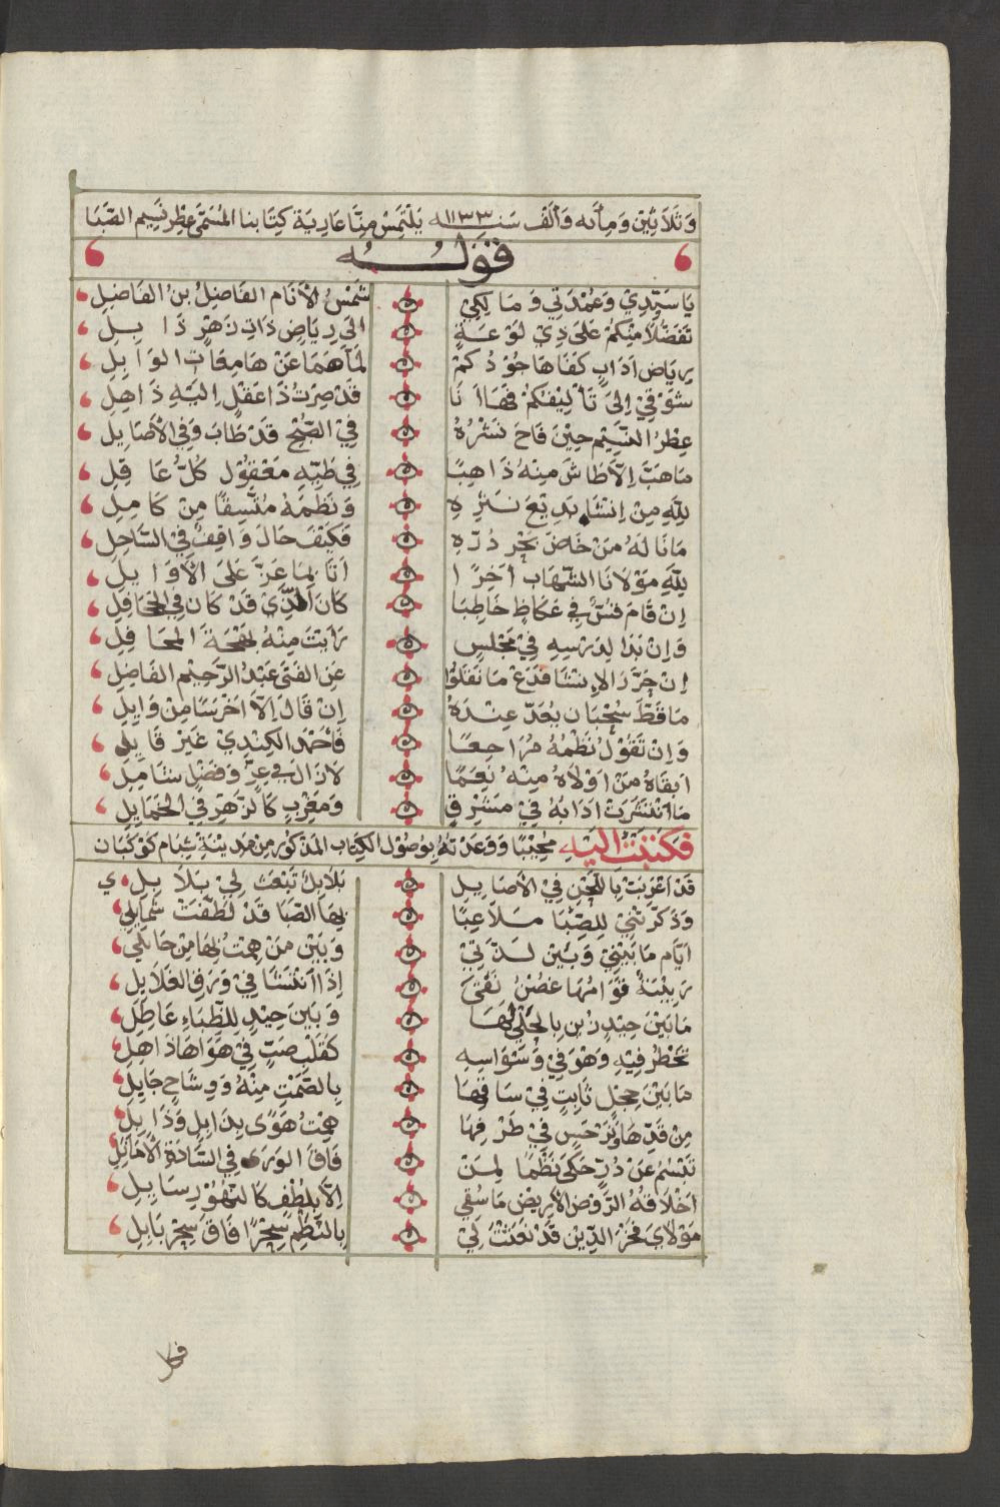 وَثَلَاثِيْن وَمِأَئه وَأَلْف سَنــ١١٣٣ــه يَلْتَمِسْ مِنَّا عَارِيَة كِتَابنا المُسَمَّى عِطْر نَسِيم الصَّبَا
قَوْلُـــــــهُ
يَا سَيِّدِيْ وَعُمْدَتِي وَمَا لِكِيْ شَمْسُ الأَنَام الفَاضِلُ بنُ الفَاضِلِ
تَفَضُّلاً مِنْكُمْ عَلَى ذِيْ لَوْعَةٍ الَى رِيَاضِ ذَاتِ زَهْرٍ ذَابِلِ
رِيَاض ادَابٍ كَفَاهَا جُوْدُكُمْ لَمَّا هَمَا عَنْ هَامِعَاتِ الوَابِلِ
شَوْقِيْ اِلَى تَألِيْفِكُمْ فَهَا انَا قَدْ صِرْتُ ذَا عَقْلٍ اِلَيْهِ ذَاهِلِ
عِطْرُ النَّسِيْمِ حِيْنَ فَاحَ نَشْرُهُ فِيْ الصُّبْحِ قَدْ طَابَ وَفِي الأَصَايِلِ
مَا هَبَّ اِلاَّ طَاشَ مِنْهُ ذَاهِبًا فِي طَيِّهِ مَعْقُوْل كُلِّ عَاقِلِ
لِلَّهِ مِنْ اِنْشَاءِ بَدِيْعِ نَثْرِهِ وَنَظْمُهُ مُتَّسِقًا مِنْ كَامِلِ
مَا نَالَهُ مَنْ خَاضَ بَحْرِ دُرِّهِ فَكَيْفَ حَالَ وَاقِفٍ فِيْ السَّاحِلِ
لِلَّهِ مَوْلَانَا الشِّهَابِ اخِرًا اتَا بِمَا عَزَّ عَلَى الأَوَايِلِ
اِنْ قَامَ قُسٌّ فِي عُكَاظٍ خَاطِبَا كَانَ الَّذِيْ قَدْ كَان فِي المَحَافِلِ
وَاِنْ بَدَا لِدَرْسِهِ فِيْ مَجْلِسٍ رَأَيْتَ مِنْهُ بَهْجَةَ المَحَافِلِ
اِنْ حَرَّرَ الاِنْشَا فَدَعْ مَا نَقَلُوْا عَنِ الفَتَى عَبْدُ الرَّحِيْمِ الفَاضِلِ
مَا قَطُّ سَحْبَان يُعَدُّ عِنْدَهُ اِنْ قَالَ اِلاَّ اخْرَسَا مِنْ وَايِلِ
وَاِنْ تَقُوْلُ نَظْمُهُ مُرَاجِعًا فَأَحْمَد الكِنْدِيْ غَيْرَ قَايِلِ
ابْقَاهُ مَنْ اوْلَاهُ مِنْهُ نِعَمًا لَازَال فِي عِزٍّ وَفَضْلٍ شَامِلِ
مَا انْتَشَرَتْ ادَابُهُ فِيْ مَشْرِقٍ وَمَغْرِبٍ كَالزَّهْرِ فِي الخَمَايِلِ
فَكَتَبْتُ اليْهِ مُجِيْبًا وَوَعَدْتهُ بِوُصُوْل الكِتَاب المَذْكُوْر مِنْ مَدِيْنَةِ شِبَام كَوْكَبَان
قَدْ اعْرَبَتْ بِاللَّحْنِ فِيْ الأَصَايِلِ بَلَابِلٌ تَبْعَثُ لِيْ بَلَابِلِي
وَذَكَّرَتْنِيْ لِلصِّبَا مَلَاعِبًا بِهَا الصَّبَا قَدْ لَطَّفَتْ شَمَايِلِي
ايَّام مَا بَيْنِيْ وَبَيْنَ لَذَّتِيْ وَبَيْن مَنْ هِمْتُ بِهَا مِنْ حَايِلِي
رَبِيْبَةٌ قَوَامُهَا غُصْنُ نَقًى اِذَا انْثَنَا فِيْ وَرَقِ الغَلَايِلِ
مَا بَيْنَ جِيْدٍ زِيْن بِالحُلِيْ لَهَا وَبَيْنَ جِيْدٍ لِلظِّبَاءِ عَاطِلِ
تَخْطُرُ فِيْهِ وَهْوَ فِيْ وَسْوَاسِهِ كَقَلْبِ صَبٍّ فِيْ هَوَاهَا ذَاهِلِ
مَا بَيْنَ حِجْلٍ ثَابِتٍ فِيْ سَاقِهَا بِالصَّمْتِ مِنْهُ وَوِشَاحٍ جَايِلِ
مِنْ قَدِّهَا وَنَرْجِسٍ فِيْ طَرْفِهَا هِمْتُ هَوًى بِذَابِلٍ وَذَابِلِ
تَبْسُمُ عَنْ دُرٍّ حَكَى نَظْمًا لِمَنْ فَاقَ الوَرَى فِي السَّادَةِ الأَمَاثِلِ
اخْلَاقُهُ الرَّوْض الأَرِيْض مَا سُقِي اِلاَّ بِلُطْفٍ كَالنُّهُوْرِ سَايِلِ
مَوْلَايَ فَخْرُ الدِّيْن قَدْ نَفَثْتَ لِيْ بِالنَّظْمِ سِحْرًا فَاقَ سِحْرَ بَابِلِ